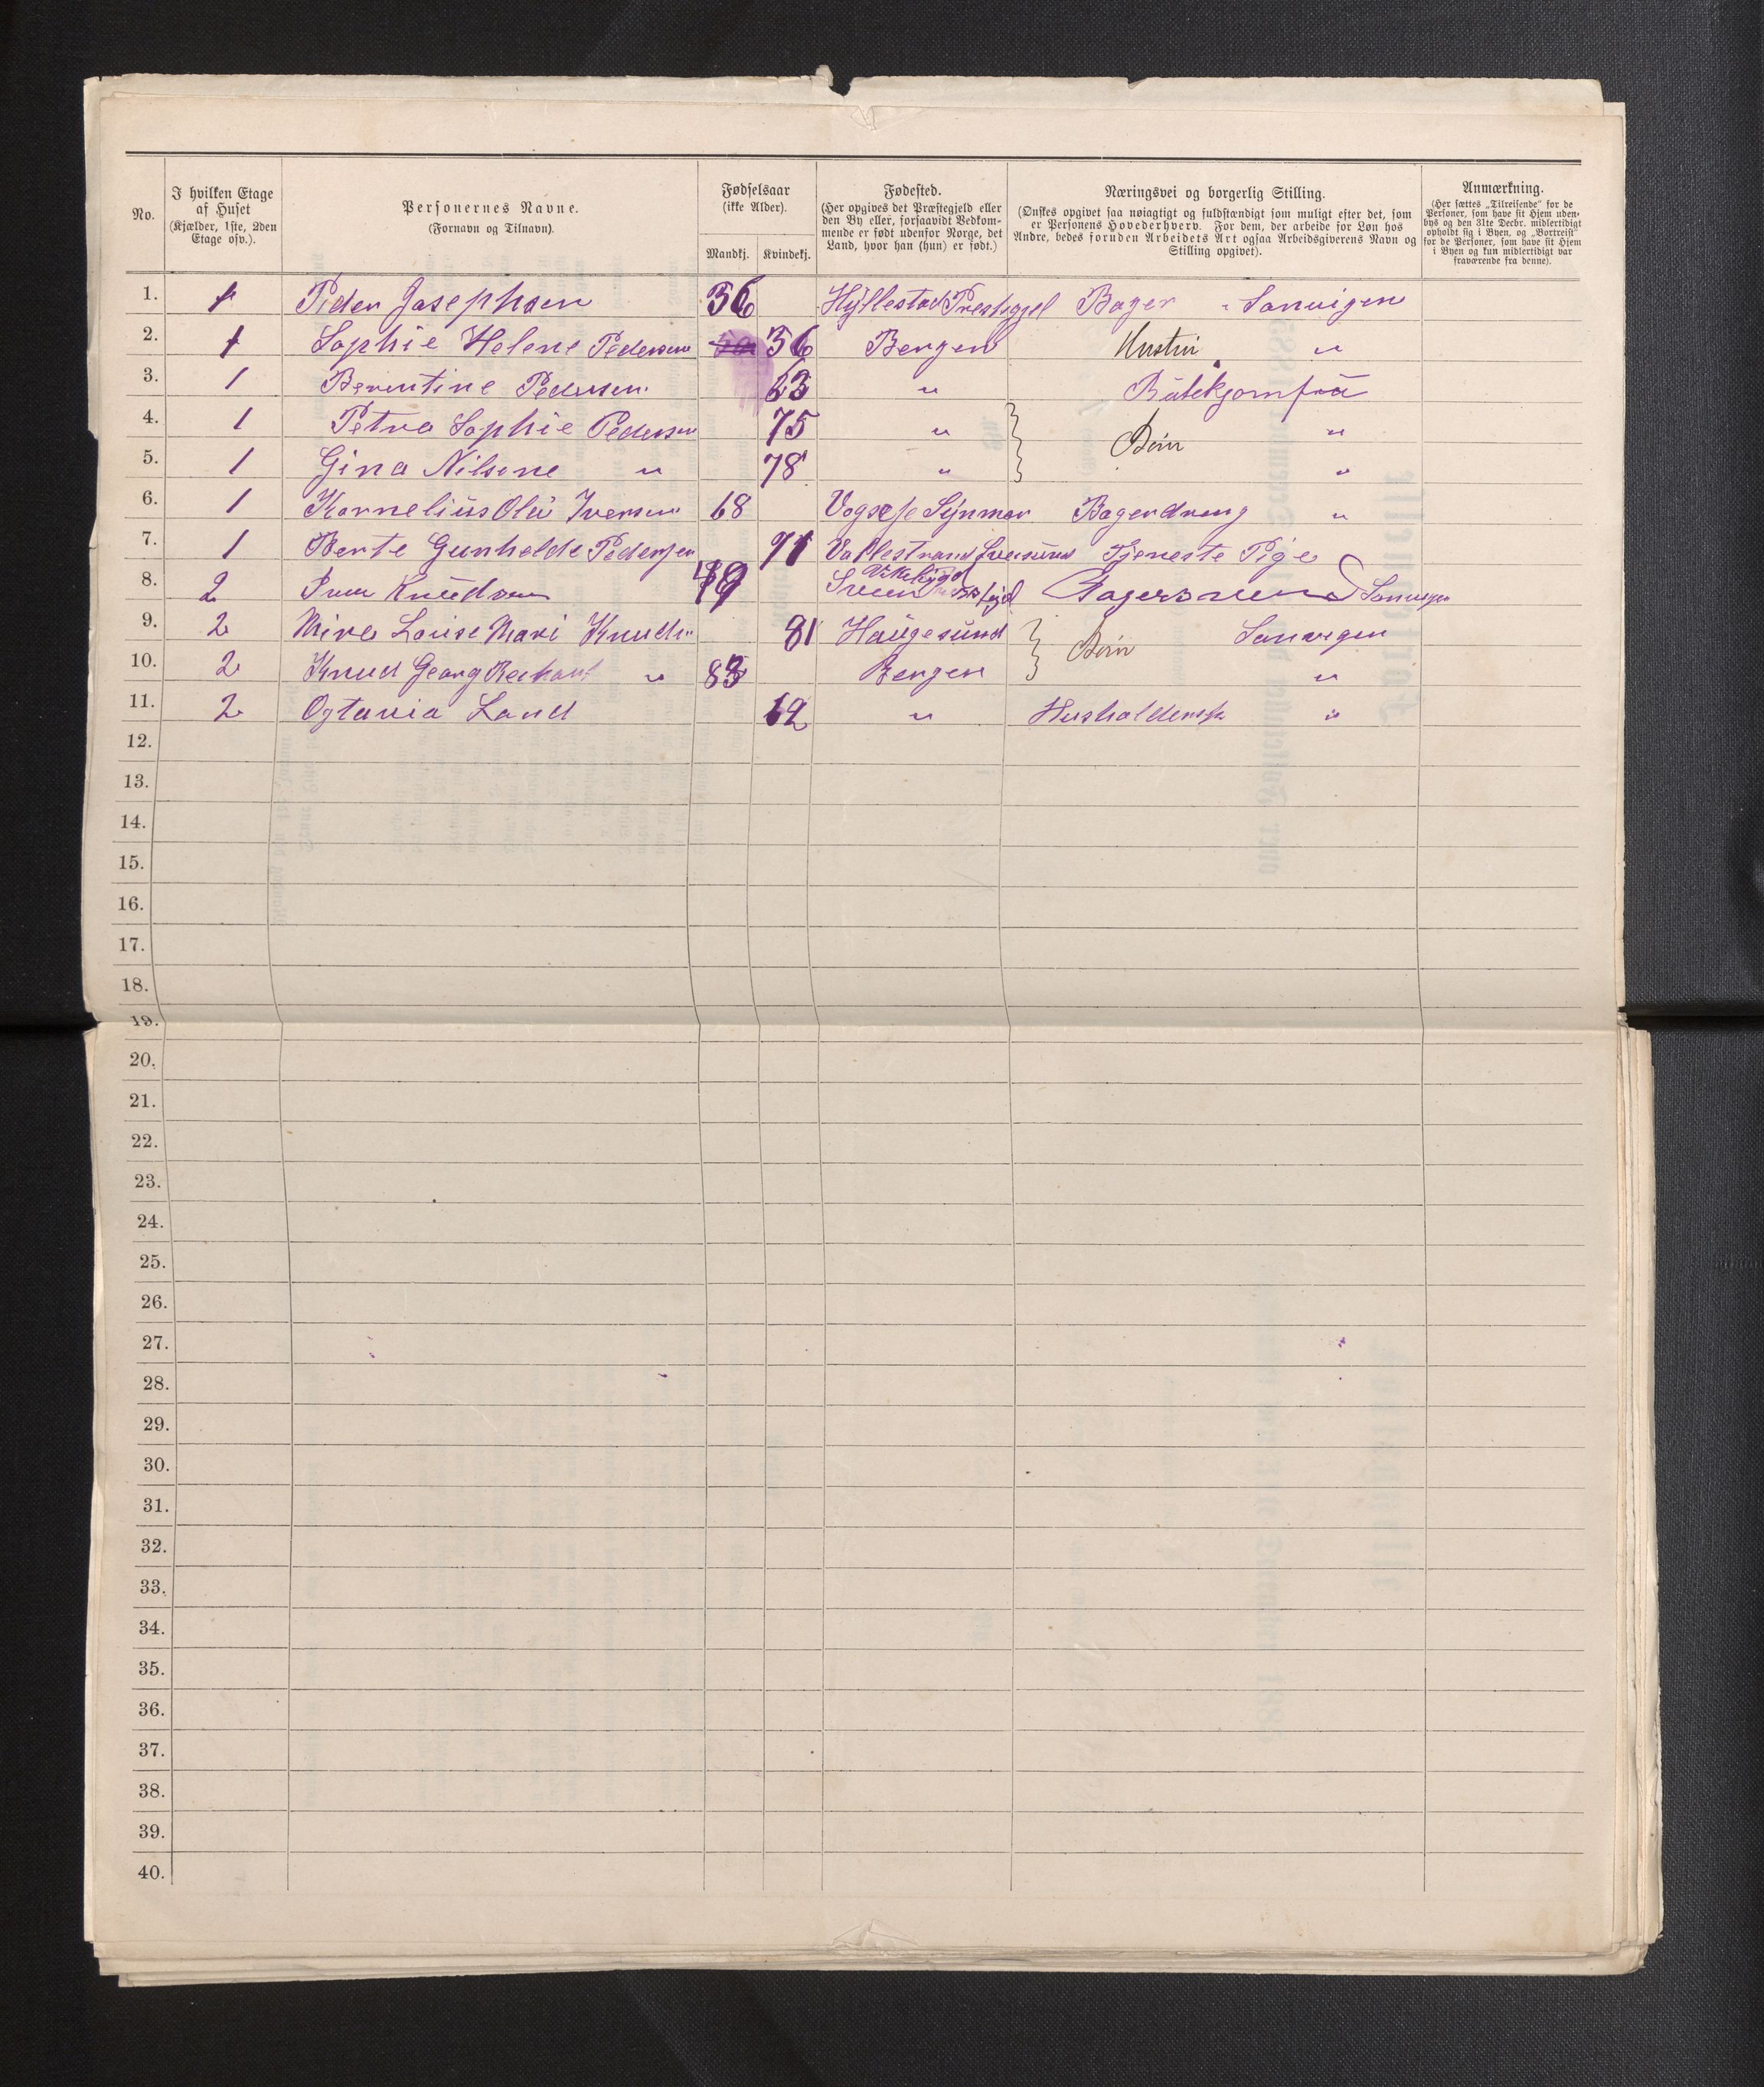 No.
I hvilken Etage
af Huset
(Kjælder, 1ste, 2den
Etage osv.).
Personernes Navne.
(Fornavn og Tilnavn).
Fødselsaar
(ikke Alder).
Mandkj. Kvindekj.
Fødested.
(Her opgives det Præstegjeld eller
den By eller, forsaavidt Vedkom-
mende er født udenfor Norge, det
Land, hvor han (hun) er født.)
Næringsvei og borgerlig Stilling.
(Ønskes opgivet saa nøiagtigt og fuldstændigt som muligt efter det, som
er Personens Hovederhverv. For dem, der arbeide for Løn hos
Andre, bedes foruden Arbeidets Art ogsaa Arbeidsgiverens Navn og
Stilling opgivet).
Anmærkning.
(Her sættes „Tilreisende” for de
Personer, som have sit Hjem uden-
bys og den 31te Decbr. midlertidigt
opholdt sig i Byen, og „Bortreist”
for de Personer, som have sit Hjem
i Byen og kun midlertidigt var
fraværende fra denne).
1. 1 Peder Josephsen 36 Hyllestad Prestegjel Bager - Sanvigen
2. 1 Sophie Helene Pedersen 36 Bergen Hustru "
3. 1 Berentine Pedersen 63 "
4. 1 Petra Sophie Pedersen 75 " Børn "
5. 1 Gina Nilsene " 78 " "
6. 1 Kornelius Olai Iversen 68 Bagerdreng "
7. 1 Berte Gunhelde Pedersen 71 Tjeneste Pige
8. 2 Knudsen 49 Sveen Vikebygd Bagersvend Sanvigen
9. 2 Louise Mari Knuds 81 Haugesund Børn Sanvigen
10. 2 Knud Georg " 83 Bergen "
11. 2 Ogtavia Land 62 " Husholderske "
12.
13.
14.
15.
16.
17.
18.
19.
20.
21.
22.
23.
24.
25.
26.
27.
28.
29.
30.
31.
32.
33.
34.
35.
36.
37.
38.
39.
40.